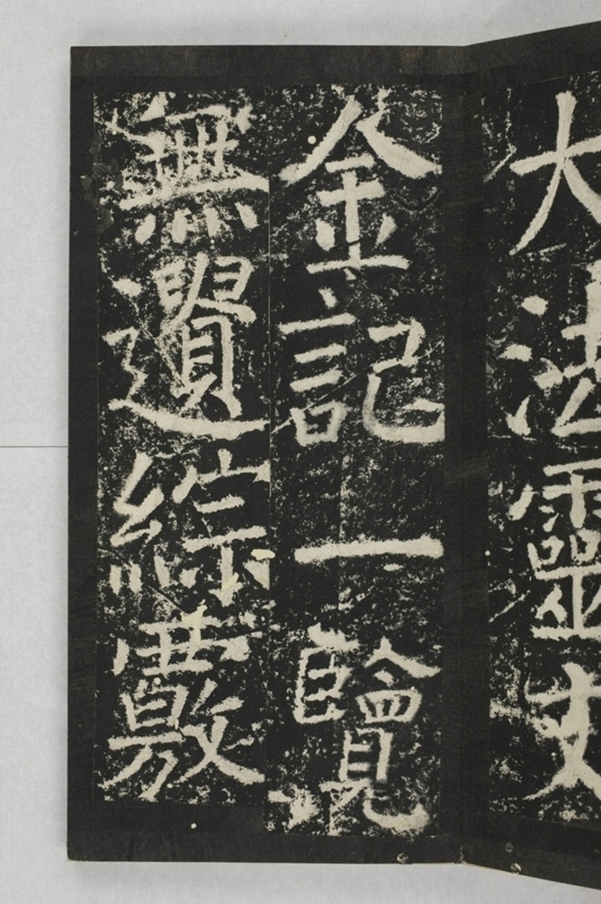 大法靈丈
金記一覽
無遺綜覈